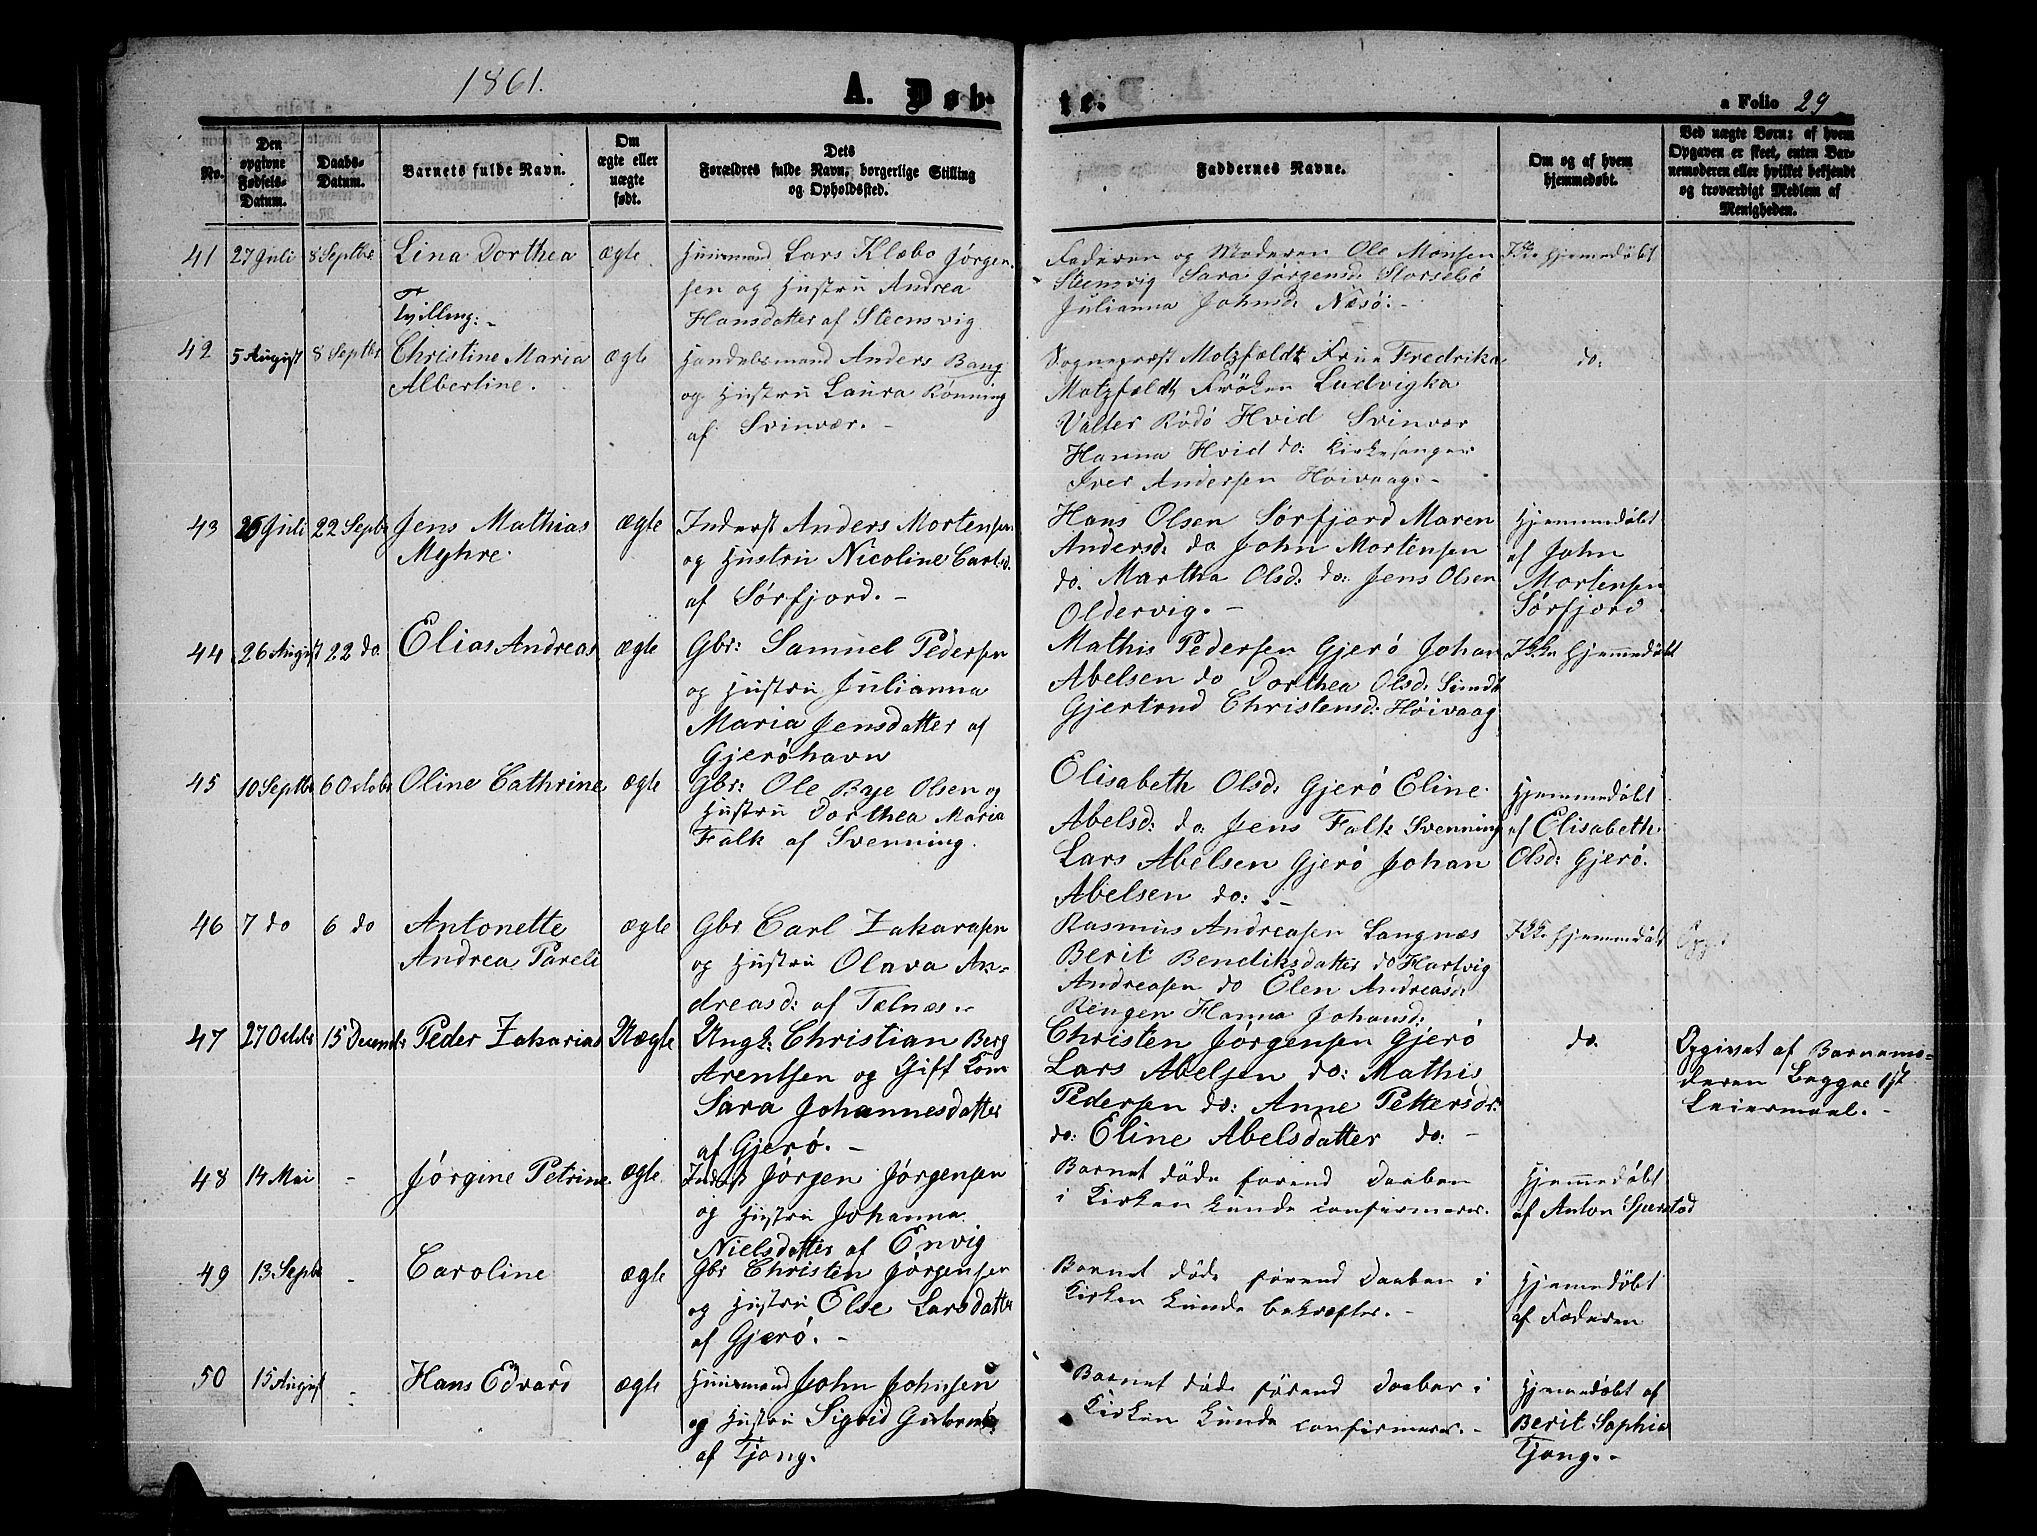 1861.
A. Døb-
te.
a Folio 29
No.
Den
opgivne
Fødsels-
Datum.
Daabs-
Datum.
Barnets fulde Navn.
Om
ægte eller
uægte
født.
Dets
Forældres fulde Navn, borgerlige Stilling
og Opholdssted.
Faddernes Navne.
Om og af hvem
hjemmedøbt.
Ved uægte Børn: af hvem
Opgaven er skeet, enten Bar-
nemoderen eller hvilket bekjendt
og troværdigt Medlem af
Menigheden.
41 27 Juli 8 Septbr Lina Dorthea ægte
Tvilling.-
Huusmand Lars Klæbo Jørgen-
sen og Hustru Andrea
Hansdatter af Steensvig
Faderen og Moderen Ole Monsen
Steensvig Sara Jørgensd. Storselsø
Julianna Johnsd. Næsø.-
Ikke Hjemmedøbt
42 5 August 8 Septbr Christine Maria
Albertine.
ægte
Handelsmand Anders Bang
og Hustru Laura Rønning
af Svinvær.-
Sognepræst Motzfeldt Frue Fredrika
Motzfeldt Frøken Ludvigka
Valter Rødø Hvid Svinvær
Hanna Hvid do: Kirkesanger
Iver Andersen Høivaag.-
do.
43 26 Juli 22 Septbr Jens Mathias
Myhre.
ægte
Inderst Anders Mortensen
og Hustru Nicoline Carlsd.
af Sørfjord.-
Hans Olsen Sørfjord Maren
Andersd: do John Mortensen
do. Martha Olsd: do: Jens Olsen
Oldervig.-
Hjemmedøbt
af John
Mortensen
Sørfjord
44 26 August 22 do Elias Andreas ægte
Gbr: Samuel Pedersen
og Hustru Julianna
Maria Jensdatter af
Gjerøhavn
Mathis Pedersen Gjerø Johan
Abelsen do Dorthea Olsd: Sundt
Gjertrud Christensd: Høivaag
Ikke Hjemmedøbt
45 10 Septbr 6 Octobr Oline Cathrine ægte
Gbr: Ole Baje Olsen og
Hustru Dorthea Maria
Falk af Svenning.
Elisabeth Olsd: Gjerø Eline
Abelsd: do: Jens Falk Svenning
Lars Abelsen Gjerø Johan
Abelsen do:.-
Hjemmedøbt
af Elisabeth
Olsd: Gjerø.
46 7 do 6 do Antonette
Andrea Pareli
ægte
Gbr Carl Zakarasen
og Hustru Olava An-
dreasd: af Tælnæs.-
Rasmus Andreasen Langnæs
Berit Bendiksdatter do Hartvig
Andreasen do Elen Andreasd:
Rengen Hanna Johansd:
Ikke Hjemmedøbt
47 27 Octobr 15 Decembr: Peder Zakarias Uægte
Ungk: Christian Berg
Arentsen og Gift Kone
Sara Johannesdatter
af Gjerø.-
Christen Jørgensen Gjerø
Lars Abelsen do: Mathis
Pedersen do: Anne Pettersdr:
do: Eline Abelsdatter do:-
do.
Opgivet af Barnemo-
deren Begges 1st
Leiermaal.-
48 14 Mai - Jørgine Petrine ægte
Inderst Jørgen Jørgensen
og Hustru Johanna
Nielsdatter af Envig
Barnet døde forend Daaben
i Kirken kunde confirmeres.
Hjemmedøbt
af Anton Sperstad
49 13 Septbr - Caroline ægte
Gbr Christen Jørgensen
og Hustru Else Larsdatter
af Gjerø.-
Barnet døde forend Daaben i
Kirken kunde bekræftes.-
Hjemmedøbt
af Faderen
50 15 August - Hans Edvard ægte
Huusmand John Johnsen
og Hustru Sigrid
af Tjong.
Barnet døde forend Daaben i
Kirken kunde confirmeres.-
Hjemmedøbt af
Berit Sophia
Tjong.-